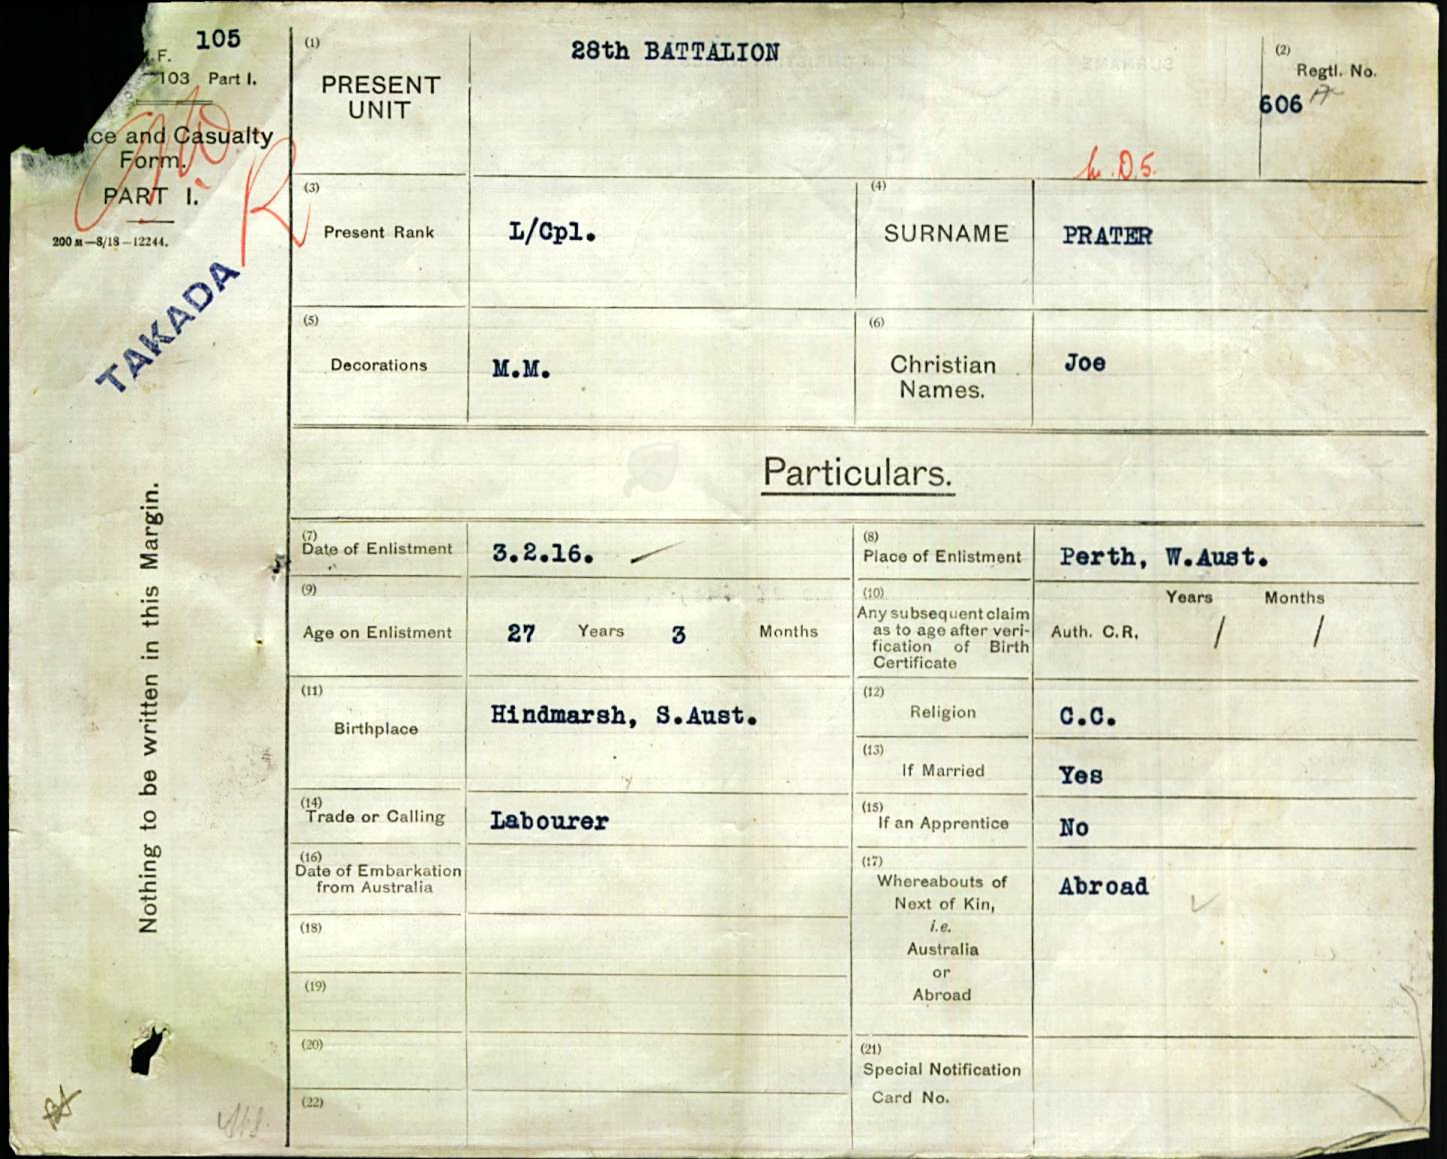 105
F.
103 Part I.
ce and Casualty
Form.
PART I.
200 M—8/18—12244.
TAKADA
R
Nothing to be written in this Margin.
(1)
PRESENT
UNIT
28th BATTALION
(2)
Regtl. No.
606 A
(3)
Present Rank
L/Cpl.
(4)
SURNAME
PRATER
(5)
Decorations
M.M.
(6)
Christian
Names.
Joe
Particulars.
(7)
Date of Enlistment
3.2.16.
(8)
Place of Enlistment
Perth, W.Aust.
(9)
Age on Enlistment
27 Years 3 Months
(10)
Any subsequent claim
as to age after veri-
fication of Birth
Certificate
Years Months
Auth. C.R. / /
(11)
Birthplace
Hindmarsh, S.Aust.
(12)
Religion
C.C.
(13)
If Married
Yes
(14)
Trade or Calling
Labourer
(15)
If an Apprentice
No
(16)
Date of Embarkation
from Australia
(17)
Whereabouts of
Next of Kin,
i.e.
Australia
or
Abroad
Abroad
(18)
(19)
(20)
(21)
Special Notification
Card No.
(22)